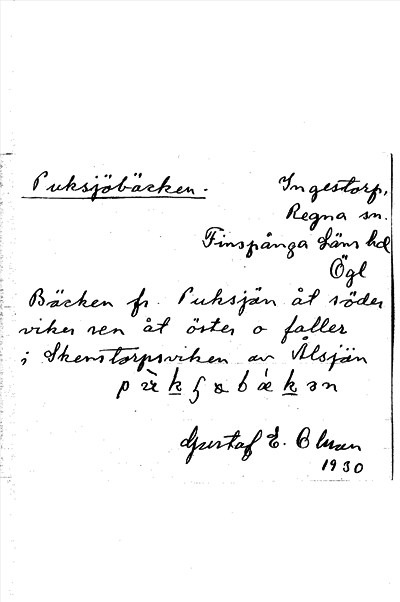 Puksjöbäcken.
Ingestorp,
Regna sn.
Finspånga läns hd
Ögl
Bäcken fr. Puksjön åt söder
viker sen åt öster o faller
i Skenstorpsviken av Ålsjön
Gustaf E. Olsson
1930